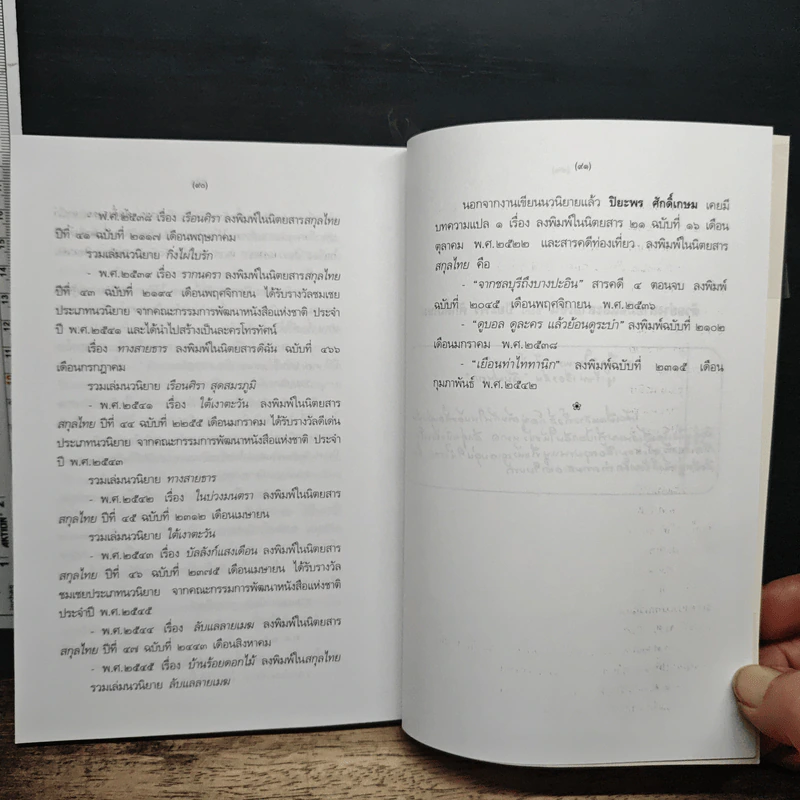 (๙๐)
- พ.ศ.๒๕๓๘ เรื่อง เรือนศิรา ลงพิมพ์ในนิตยสารสกุลไทย
ปีที่ ๔๑ ฉบับที่ ๒๑๑๗ เดือนพฤษภาคม
รวมเล่มนวนิยาย กิ่งไผ่ใบรัก
- พ.ศ.๒๕๓๙ เรื่อง รากนครา ลงพิมพ์ในนิตยสารสกุลไทย
ปีที่ ๔๓ ฉบับที่ ๒๑๙๔ เดือนพฤศจิกายน ได้รับรางวัลชมเชย
ประเภทนวนิยาย จากคณะกรรมการพัฒนาหนังสือแห่งชาติ ประจำ
ปี พ.ศ.๒๕๔๑ และได้นำไปสร้างเป็นละครโทรทัศน์
เรื่อง ทางสายธาร ลงพิมพ์ในนิตยสารดิฉัน ฉบับที่ ๔๖๖
เดือนกรกฎาคม
รวมเล่มนวนิยาย เรือนศิรา สุดสมรภูมิ
- พ.ศ.๒๕๔๑ เรื่อง ใต้เงาตะวัน ลงพิมพ์ในนิตยสาร
สกุลไทย ปีที่ ๔๔ ฉบับที่ ๒๒๕๕ เดือนมกราคม ได้รับรางวัลดีเด่น
ประเภทนวนิยาย จากคณะกรรมการพัฒนาหนังสือแห่งชาติ ประจำ
ปี พ.ศ.๒๕๔๓
รวมเล่มนวนิยาย ทางสายธาร
- พ.ศ.๒๕๔๒ เรื่อง ในบ่วงมนตรา ลงพิมพ์ในนิตยสาร
สกุลไทย ปีที่ ๔๕ ฉบับที่ ๒๓๑๒ เดือนเมษายน
รวมเล่มนวนิยาย ใต้เงาตะวัน
- พ.ศ.๒๕๔๓ เรื่อง บัลลังก์แสงเดือน ลงพิมพ์ในนิตยสาร
สกุลไทย ปีที่ ๔๖ ฉบับที่ ๒๓๗๕ เดือนเมษายน ได้รับรางวัล
ชมเชยประเภทนวนิยาย จากคณะกรรมการพัฒนาหนังสือแห่งชาติ
ประจำปี พ.ศ.๒๕๔๕
- พ.ศ.๒๕๔๔ เรื่อง ลับแลลายเมฆ ลงพิมพ์ในนิตยสาร
สกุลไทย ปีที่ ๔๗ ฉบับที่ ๒๔๔๓ เดือนสิงหาคม
- พ.ศ.๒๕๔๕ เรื่อง บ้านร้อยดอกไม้ ลงพิมพ์ในสกุลไทย
รวมเล่มนวนิยาย ลับแลลายเมฆ
(๙๑)
นอกจากงานเขียนนวนิยายแล้ว ปิยะพร ศักดิ์เกษม เคยมี
บทความแปล ๑ เรื่อง ลงพิมพ์ในนิตยสาร ๒๑ ฉบับที่ ๑๖ เดือน
ตุลาคม พ.ศ.๒๕๒๒ และสารคดีท่องเที่ยว ลงพิมพ์ในนิตยสาร
สกุลไทย คือ
- “จากชลบุรีถึงบางปะอิน” สารคดี ๔ ตอนจบ ลงพิมพ์
ฉบับที่ ๒๐๔๕ เดือนพฤศจิกายน พ.ศ.๒๕๓๖
- “ดูบอล ดูละคร แล้วย้อนดูระบำ” ลงพิมพ์ฉบับที่ ๒๑๐๒
เดือนมกราคม พ.ศ.๒๕๓๘
- “เยือนท่าไททานิก” ลงพิมพ์ฉบับที่ ๒๓๑๕ เดือน
กุมภาพันธ์ พ.ศ.๒๕๔๒